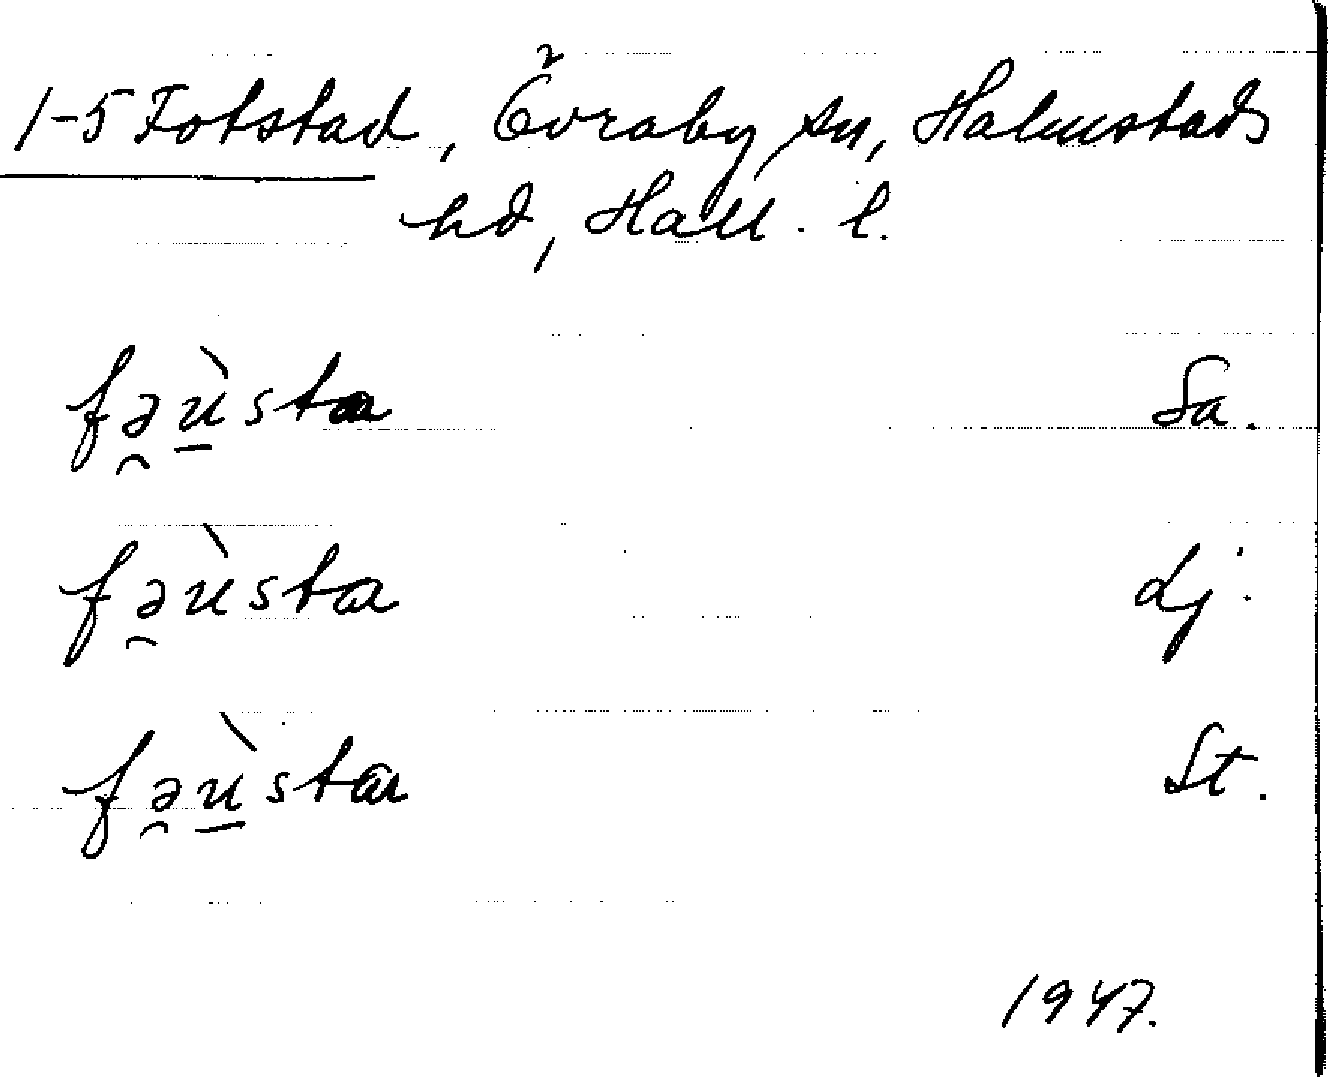 1-5 Fotstad, Övraby sn, Halmstads
hd, Hall. l.
fə̯ù̱sta Sa.
fə̯ùsta Lj.
fə̯ù̱sta St.
1947.